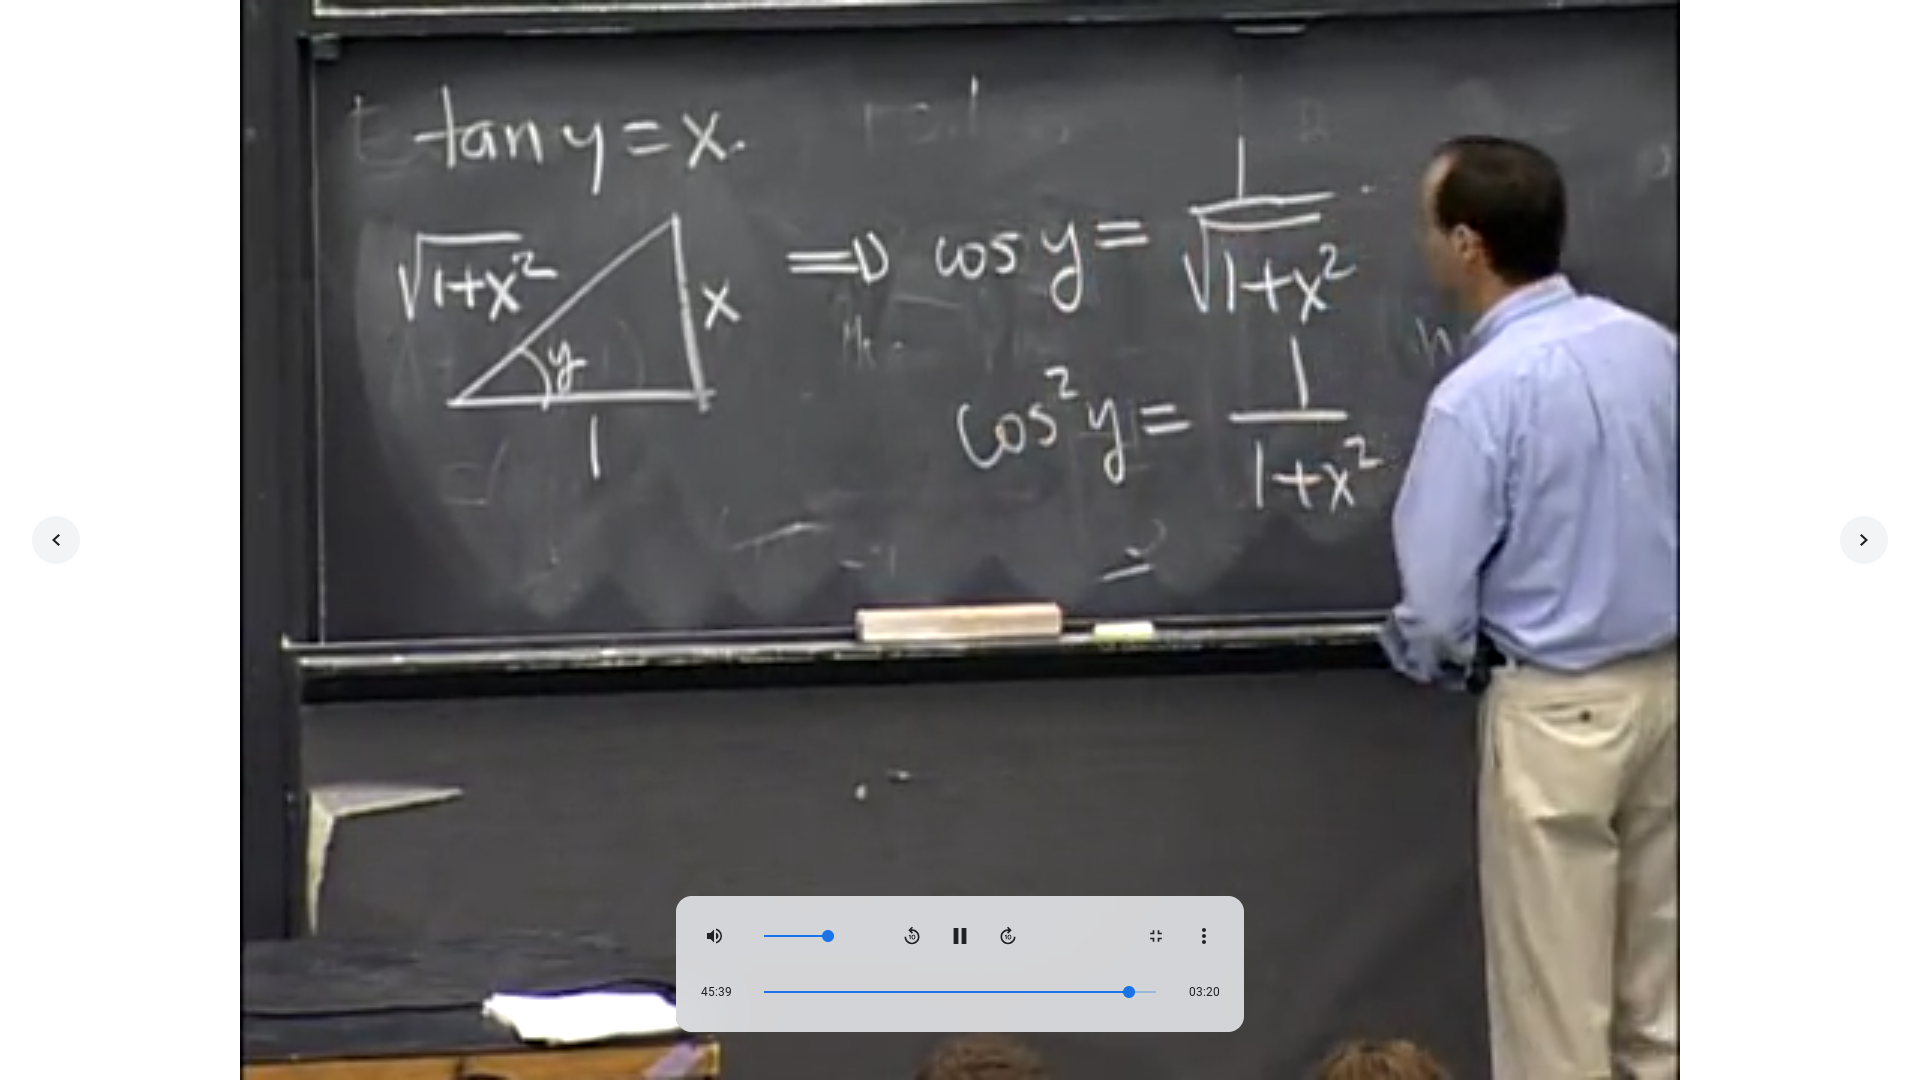 tan y = x.
√1+x² y x 1
⇒ cos y = 1/√1+x²
cos² y = 1/1+x²
45:39 03:20